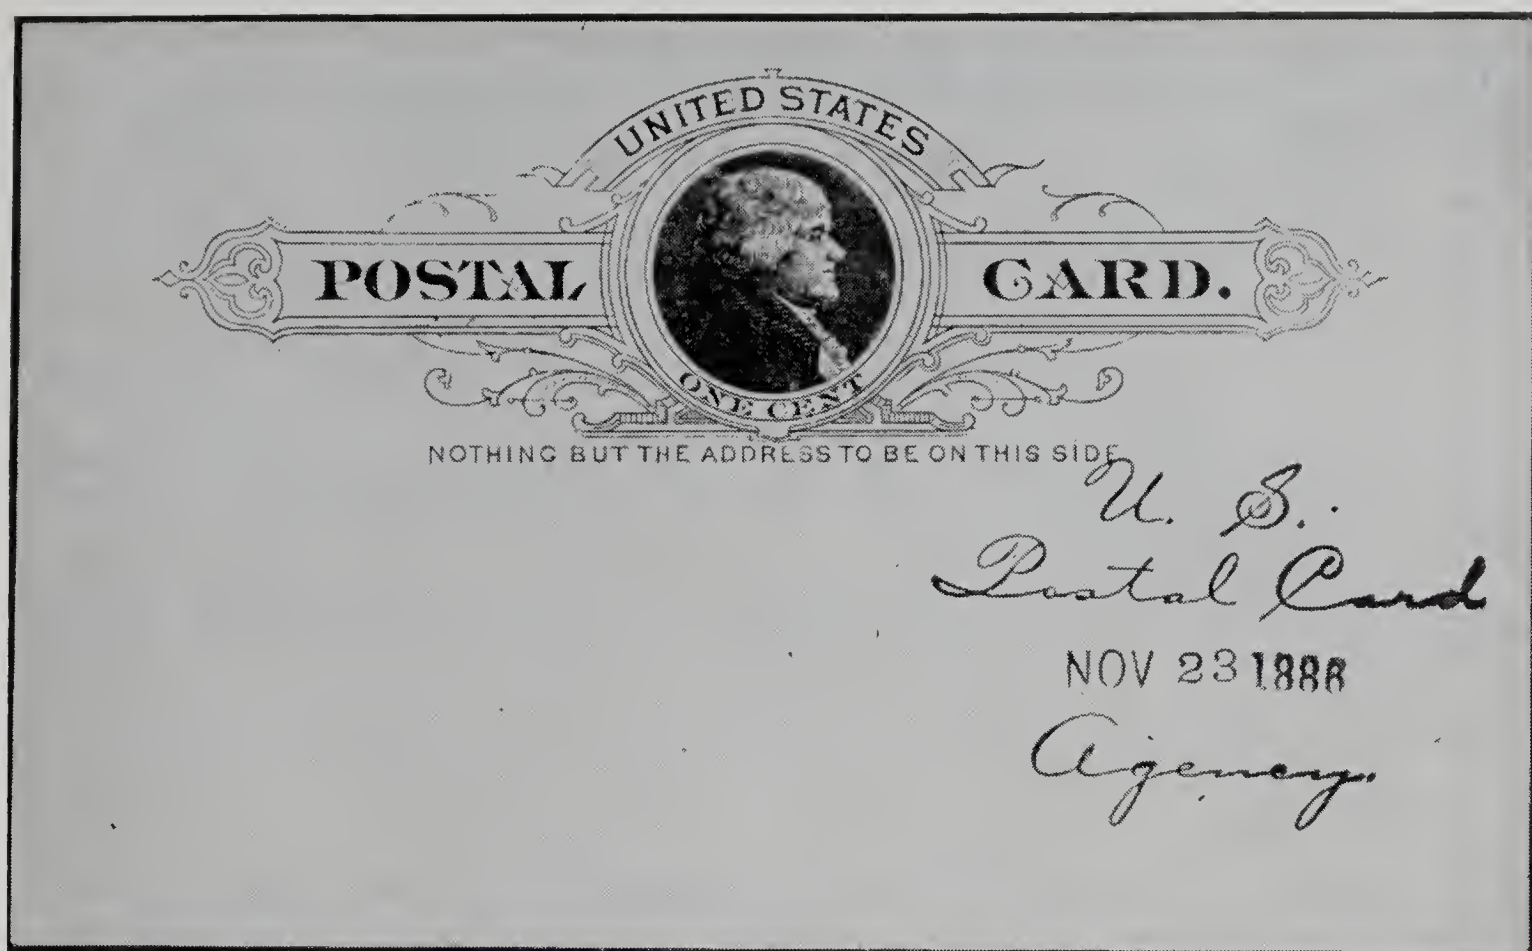 UNITED STATES
POSTAL CARD.
ONE CENT
NOTHING BUT THE ADDRESS TO BE ON THIS SIDE
U. S.
Postal Card
NOV 23 1886
Agency.